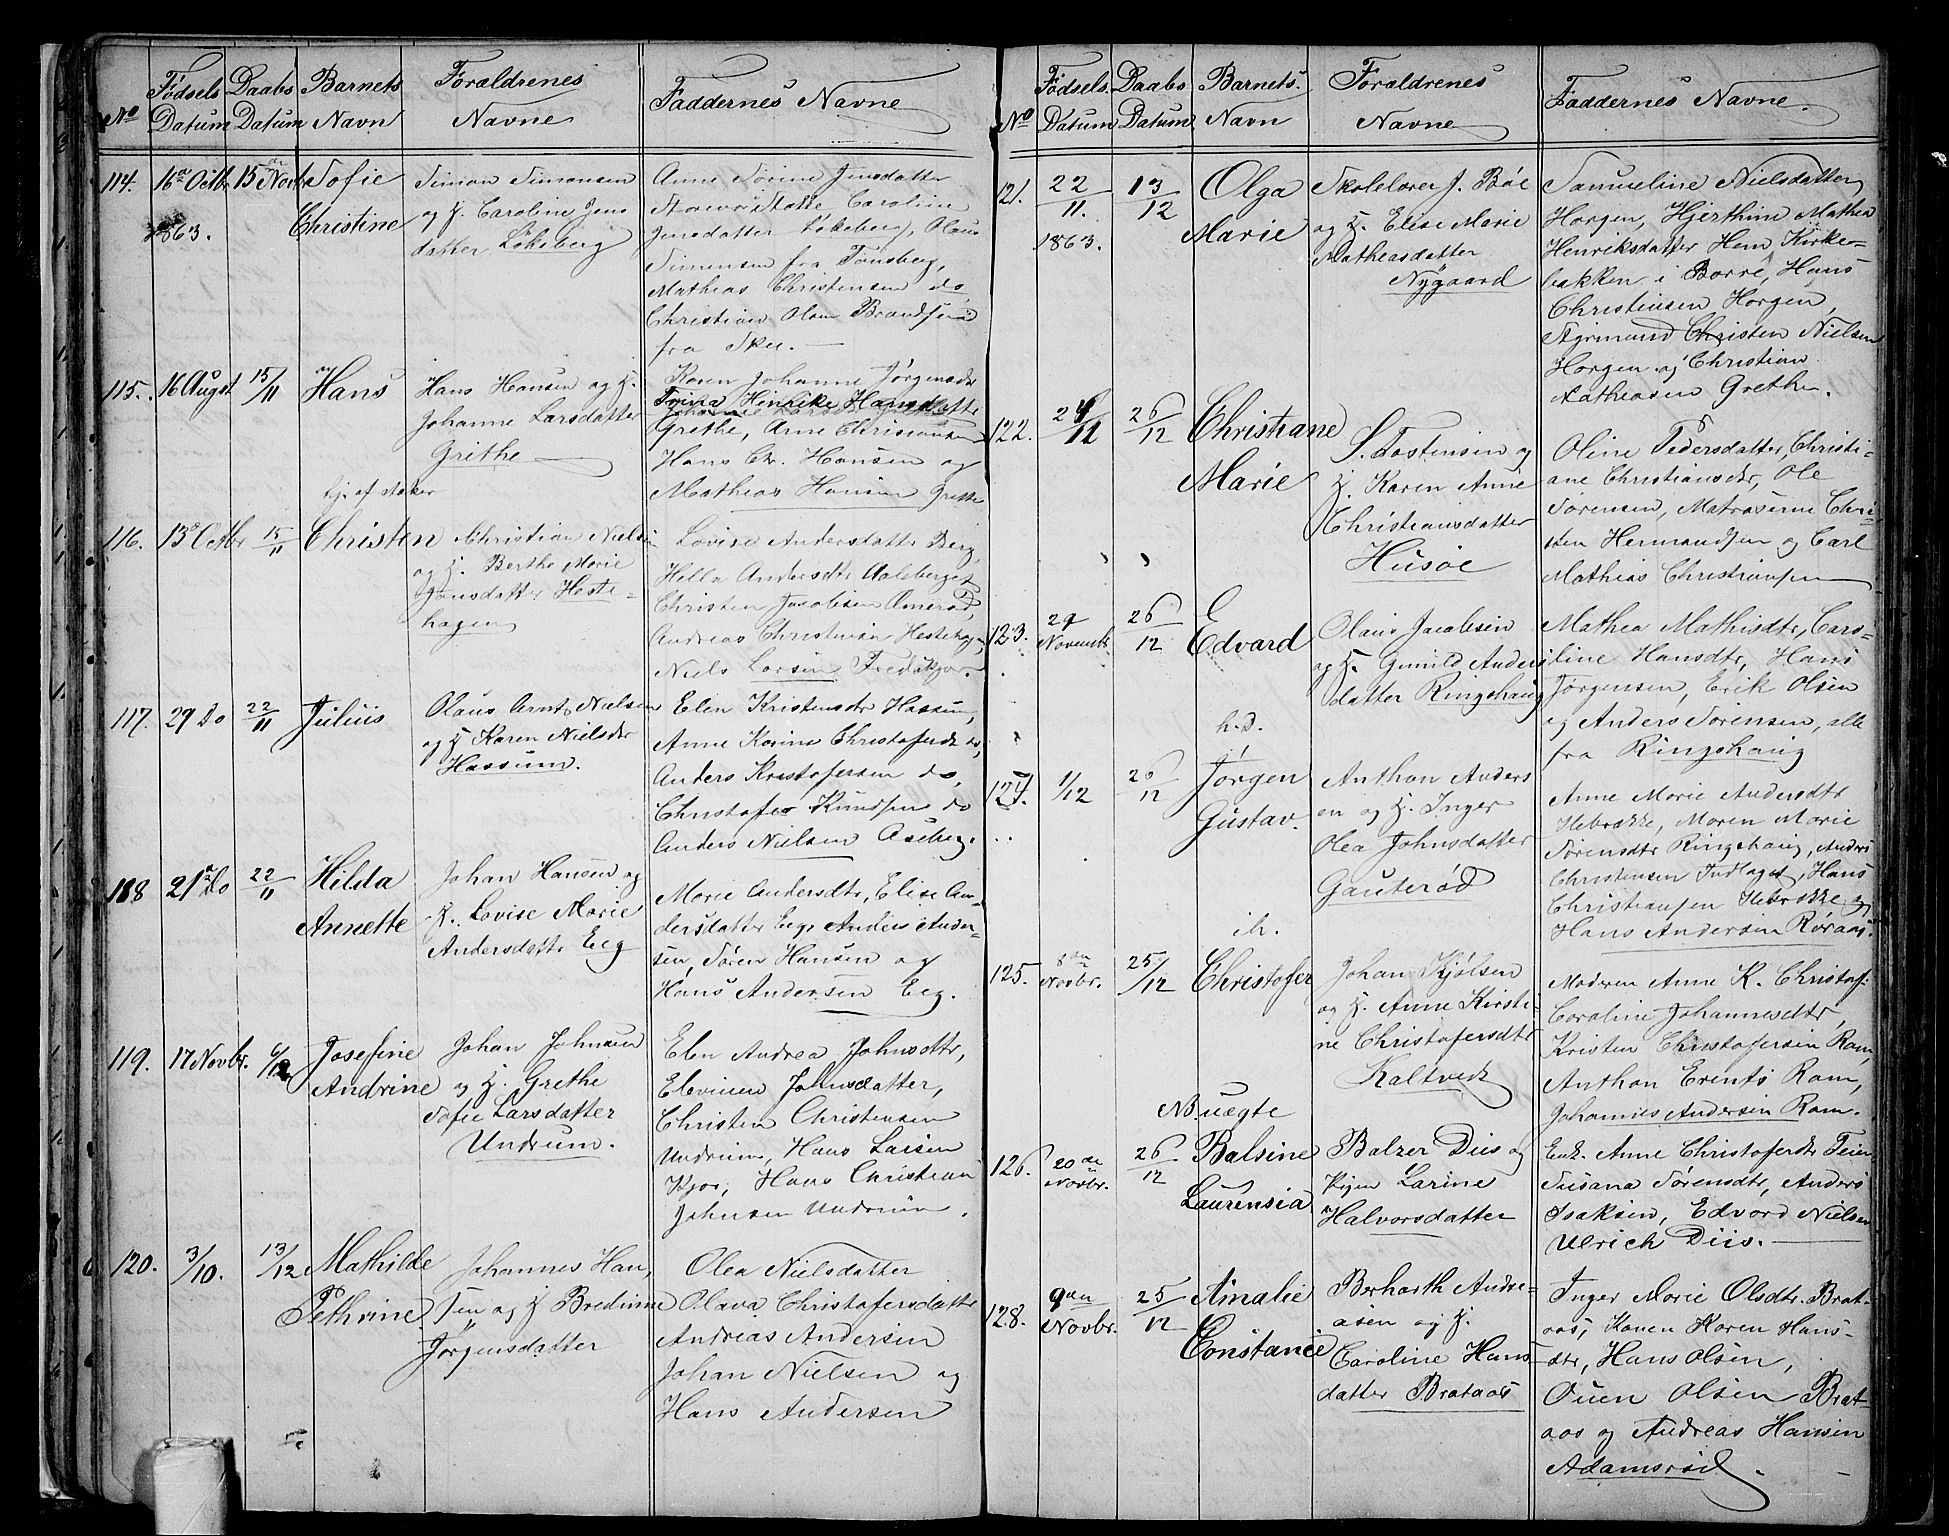 No
Fødsels Datum
Daabs Datum
Barnets Navn
Forældrenes Navne
Faddernes Navne
114.
16de Octbr 1863.
15de Novbr
Sofie
Christine
Simon Simonsen
og H. Caroline Jens
datter Løkeberg
Anne Sørine Jensdatter
Caroline
Jensdatter Løkeberg, Olaus
Simensen fra Tønsberg,
Mathias Christensen do,
Christian Olsen
fra
115.
16 Augst
15/11
Hans
Hans Hansen og H.
Johanne Larsdatter
Grethe
Karen Johanne Jørgensdr
Trina Henrike Hansdatte
Grethe, Arne Christiansen
Hans Chr. Hansen og
Mathias Hansen Grethe
116.
13de Octbr
15/11
Christen
Christian Nielsen
og H. Berthe Marie
Jonsdatter Heste-
hagen
Lovise Andersdattr Berg,
Hella Andersdtr Aalsberget
Christen Jacobsen
Andreas Christensen Hestehagen
Niels Larsen
117.
29 Do
22/11
Julius
Olaus Arnt Nielsen
og H. Karen Nielsdr
Hassum.
Elen Kristensdr Hassum,
Anne Karine Christofersdr do,
Anders Kristofersen do,
Christofer Knudsen do
Anders Nielsen Aseberg.
118
21de Do
22/11
Hilda
Annette
Johan Hansen og
H. Lovise Marie
Andersdattr Eeg
Marie Andersdtr, Elise An-
dersdatter Eeg, Anders Ander-
sen, Søren Hansen og
Hans Andersen Eeg.
119.
17 Novbr.
6/12
Josefine
Andrine
Johan Johnsen
og H. Grethe
Sofie Larsdatter
Undrum.
Elen Andrea Johnsdtr,
Elevine Johnsdatter,
Christen Christensen
Undrum, Hans Larsen
Kjær, Hans Christian
Johnsen Undrum.
120.
3/10.
13/12
Mathilde
Pethrine
Johannes Han,
sen og H Bredine
Jørgensdatter
Olea Nielsdatter
Olava Christofersdattr
Andreas Andersen
Johan Nielsen og
Hans Andersen
No
Fødsels. Datum
Daabs Datum
Barnets. Navn
Forældrenes Navne
Faddernes Navne.
121.
22/11. 1863.
13/12
Olga
Marie
Skolelærer J. Bøe
og H. Elise Marie
Matheasdatter
Nygaard
Samueline Nielsdatter
Horgen, Mathea
Henriksdatter Hem Kirke-
bakken i Borre, Hans
Christensen Horgen,
Christen Nielsen
Horgen og Christian
Mathiasen Grethe.
122.
24/11
26/12
Christiane
Marie
S. Tostensen og
H. Karen Anne
Christiansdatter
Husøe
Oline Pedersdatter, Christi-
ane Christiansdr, Ole
Sørensen, Matroserne Chri-
sten Hermandsen og Carl
Mathias Christiansen
123.
29 Novemb.
26/12
Edvard
Olaus Jacobsen
og H. Gunild Anders
datter Ringshaug
Mathea Mathisdtr, Caro-
line Hansdtr, Hans
Jørgensen, Erik Olsen
og Anders Sørensen, alle
fra Ringshaug
h.d.
124.
1/12
26/12
Jørgen
Gustav.
Anthon Anders
en og H. Inger
Olea Johnsdatter
Gauterød
Anne Marie Andersdtr
Hebrække, Maren Marie
Sørensdtr Ringshaug, Anders
Christensen Indlaget, Hans
Christiansen Hebrække og
Hans Andersen Røraas.
ih.
125.
8de Novbr.
25/12
Christofer
Johan Kjølsen
og H. Anne Kirsti-
ne Christofersdtr
Kaltved
Moderen Anne K. Christof.
Caroline Johannesdtr,
Kristen Christofersen Ram,
Anthon Erents Ram,
Johannes Andersen Ram.
NB uægte
126.
20de Novbr.
26/12
Balsine
Laurensia
Balzer Diis og
Pigen Larine
Halvorsdatter
Enk. Anne Christoferdtr Feien
Susana Sørensdtr, Anders
Isaksen, Edvard Nielsen
Ulrich Diis.
128.
9de Novbr.
25/12
Amalie
Constance
Berharth Andre-
asen og H.
Caroline Hans
datter Brataas
Inger Marie Olsdtr. Brat-
aas, Konen Karen Hans-
dtr, Hans Olsen,
Ouen Olsen Brat-
aas og Andreas Hansen
Adamsrød.